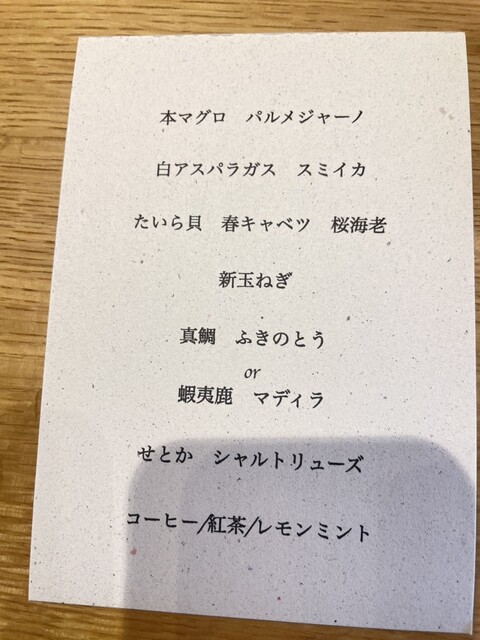 本マグロ　パルメジャーノ
白アスパラガス　スミイカ
たいら貝　春キャベツ　桜海老
新玉ねぎ
真鯛　ふきのとう
or
蝦夷鹿　マディラ
せとか　シャルトリューズ
コーヒー/紅茶/レモンミント